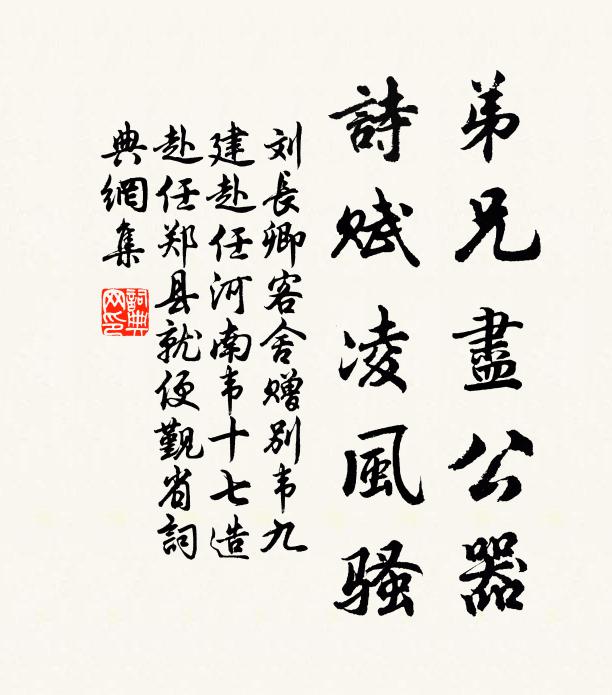 弟兄盡公器
詩赋凌風骚
刘長卿客舍赠别韦九
建赴任河南韦十七造
赴任郑县就便覲省詞
典網集
詞典網印